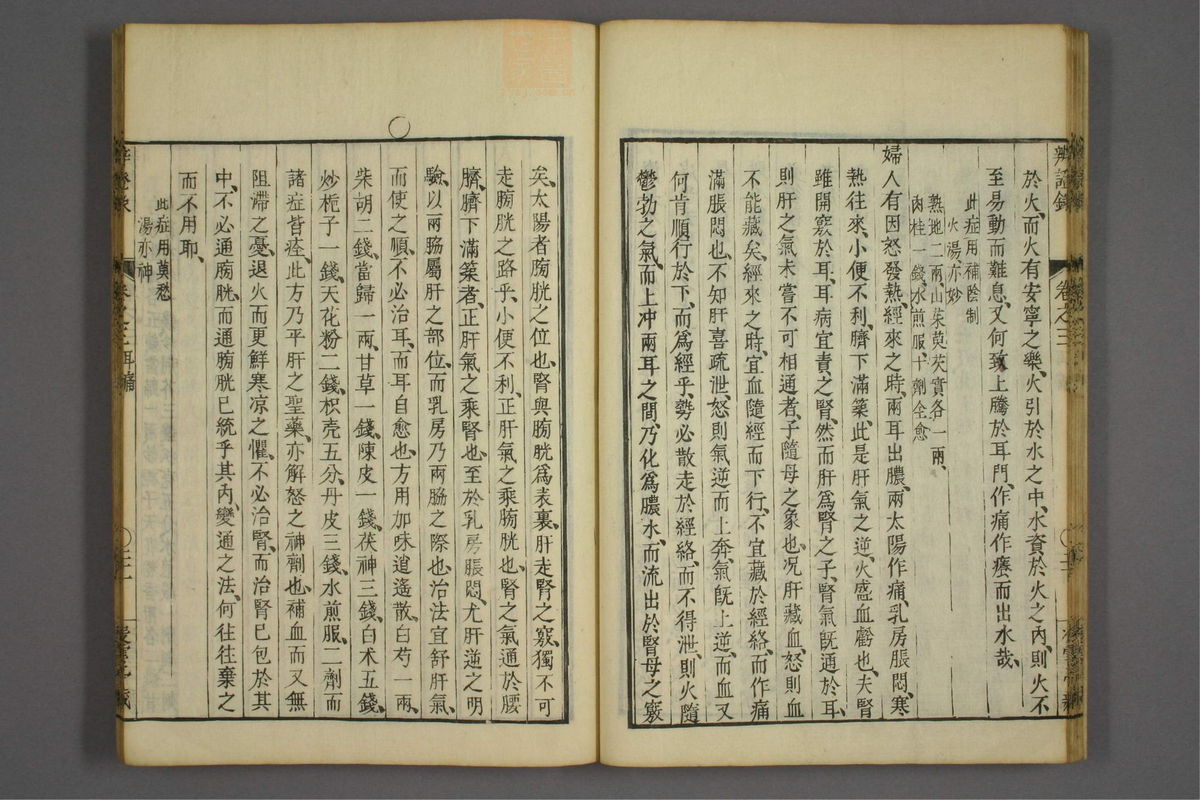 於火、而火有安寧之樂、火引於水之中、水資於火之內、則火不
至易動而難息、又何致上騰於耳門、作痛作癢而出水哉、
此症用補陰制
火湯亦妙
熟地二兩、山茱萸芡實各一兩、
肉桂一錢、水煎服十劑全愈
婦人有因怒發熱、經來之時、兩耳出膿、兩太陽作痛、乳房脹悶、寒
熱往來、小便不利、臍下滿築、此是肝氣之逆、火盛血虧也、夫腎
雖開竅於耳、耳病宜責之腎、然而肝爲腎之子、腎氣既通於耳、
則肝之氣未嘗不可相通者、子隨母之象也、况肝藏血、怒則血
不能藏矣、經來之時、宜血隨經而下行、不宜藏於經絡、而作痛
滿脹悶也、不知肝喜疏泄、怒則氣逆而上奔、氣既上逆、而血又
何肯順行於下、而爲經乎、勢必散走於經絡、而不得泄、則火隨
鬱勃之氣、而上冲兩耳之間、乃化爲膿水、而流出於腎母之竅
矣、太陽者膀胱之位也、腎與膀胱爲表裏、肝走腎之竅、獨不可
走膀胱之路乎、小便不利、正肝氣之乘膀胱也、腎之氣通於腰
臍、臍下滿築者、正肝氣之乘腎也、至於乳房脹悶、尤肝逆之明
驗、以兩脇屬肝之部位、而乳房乃兩脇之際也、治法宜舒肝氣、
而使之順、不必治耳、而耳自愈也、方用加味逍遙散、白芍一兩、
柴胡二錢、當歸一兩、甘草一錢、陳皮一錢、茯神三錢、白术五錢、
炒梔子一錢、天花粉二錢、枳壳五分、丹皮三錢、水煎服、二劑而
諸症皆痊、此方乃平肝之聖藥、亦解怒之神劑也、補血而又無
阻滯之憂、退火而更鮮寒凉之懼、不必治腎、而治腎已包於其
中、不必通膀胱、而通膀胱已統乎其內、變通之法、何往往棄之
而不用耶、
此症用莫愁
湯亦神